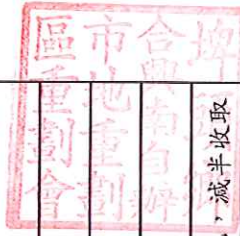 埤
合興南自辦
市地重劃
區重劃會
，減半收取